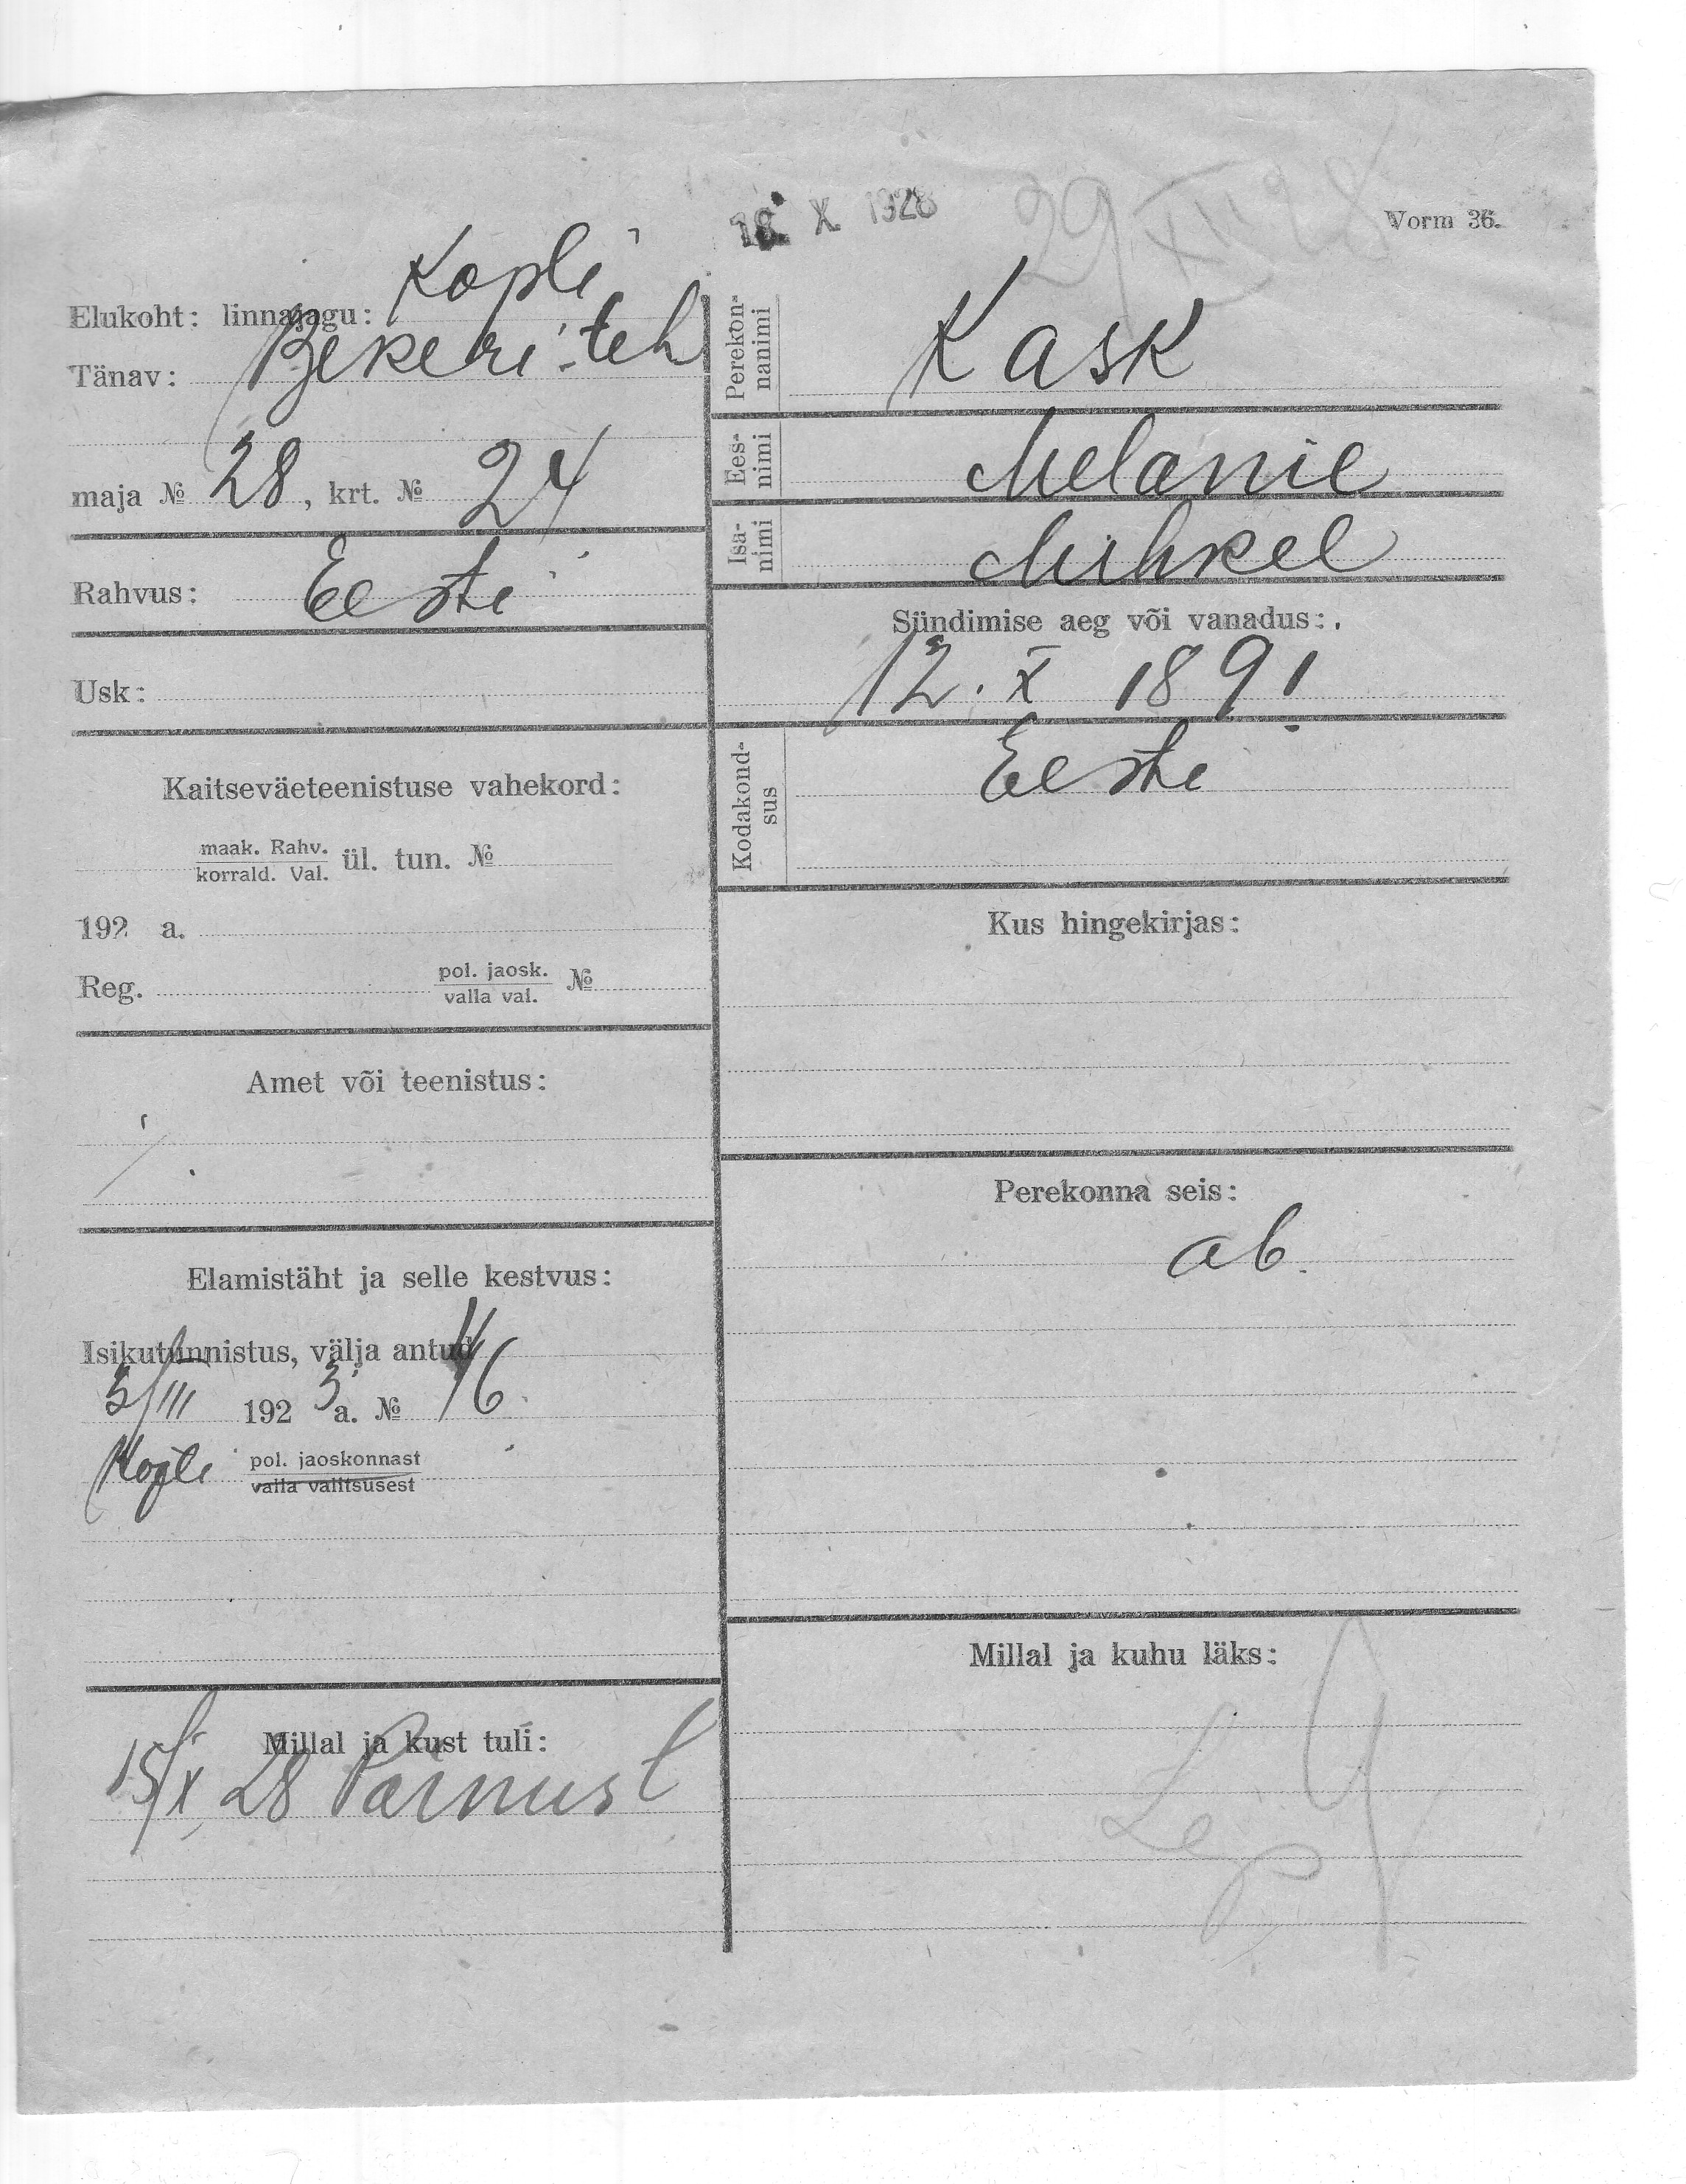 X 1928
29 XII 28
Vorm 36.
Elukoht: linnajagu: Kopli
Tänav: Bekeri teh
maja № 28, krt. № 24
Rahvus: Eesti
Usk:
Kaitseväeteenistuse vahekord:
maak. Rahv.
korrald. Val.
ül. tun. №
192 a.
Reg. pol. jaosk. №
valla val.
Amet või teenistus:
Elamistäht ja selle kestvus:
Isikutunnistus, välja antud
5/III 1923 a. № 16
Kopli pol. jaoskonnast
valla valitsusest
Millal ja kust tuli:
15/X 28 Pärnust
Perekonnanimi Kask
Eesnimi Melanie
Isanimi Mihkel
Sündimise aeg või vanadus:
12. X 1891
Kodakondsus Eesti
Kus hingekirjas:
Perekonna seis:
ab.
Millal ja kuhu läks: